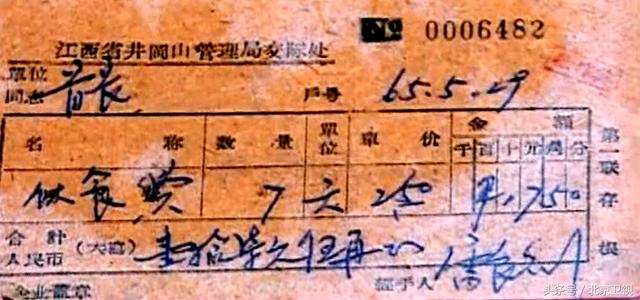 № 0006482
江西省井岡山管理局交际处
單位
同志 首長 戶号 65.5.29
名 称 數 量 單位 單 价 金 額
千 百 十 元 角 分
伙食费 7 天 2.50 ¥17.50
合計
人民币 (大寫) 壹拾柒元伍角 經手人
企业蓋章
第一联存根
头条号 / 北京卫视